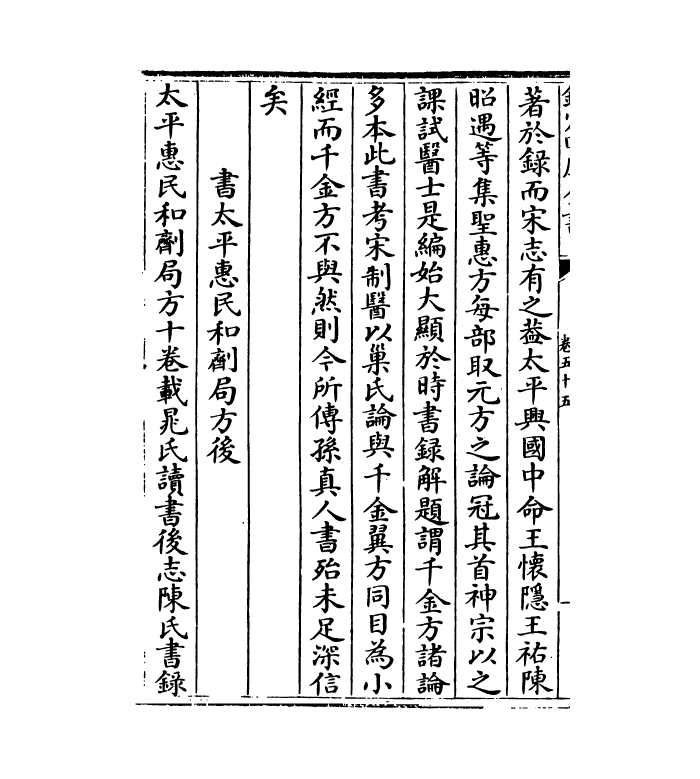 著於錄而宋志有之葢太平興國中命王懷隱王祐陳
昭遇等集聖惠方每部取元方之論冠其首神宗以之
課試醫士是編始大顯於時書錄解題謂千金方諸論
多本此書考宋制醫以巢氏論與千金翼方同目為小
經而千金方不與然則今所傳孫真人書殆未足深信
矣
書太平惠民和劑局方後
太平惠民和劑局方十卷載晁氏讀書後志陳氏書錄
卷五十五